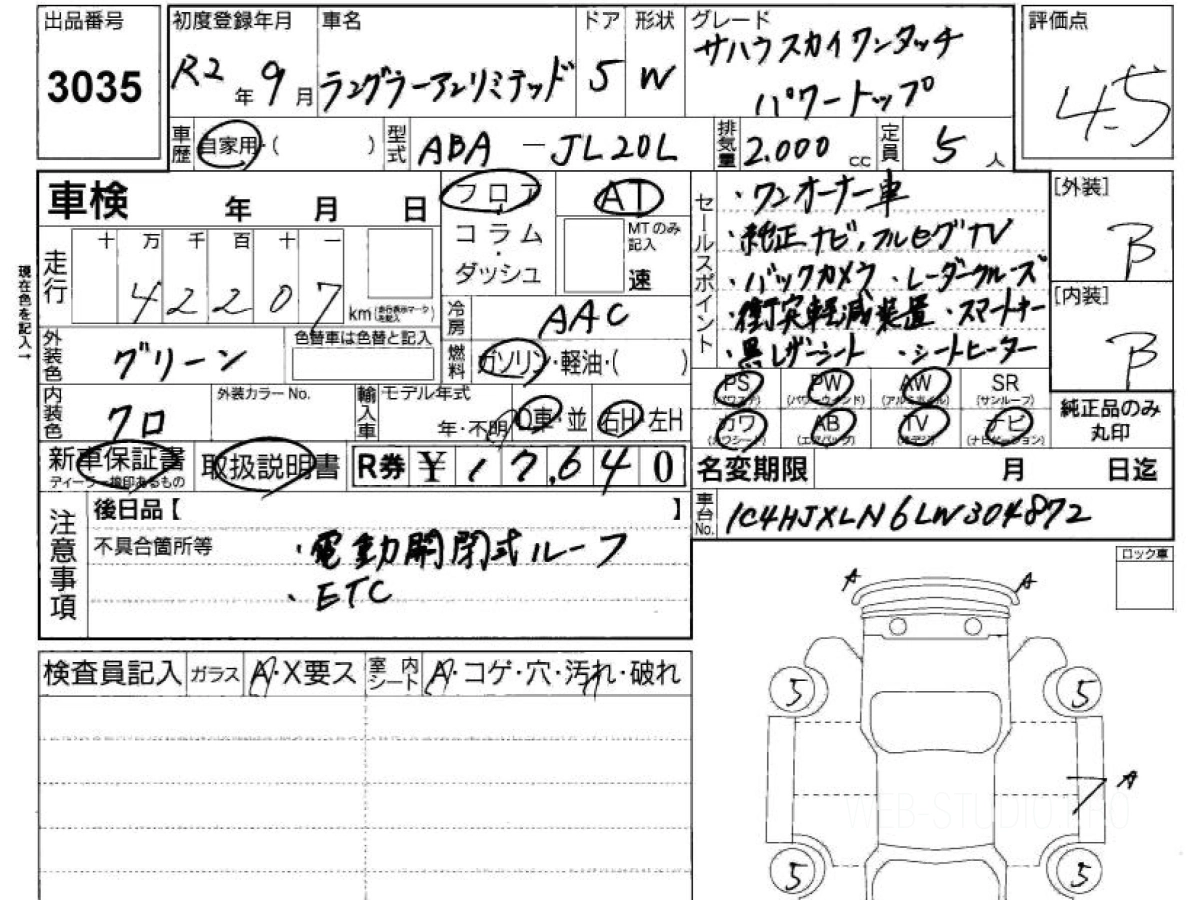 出品番号
3035
初度登録年月
R2年9月
車名
ラングラーアンリミテッド
ドア
5
形状
W
グレード
サハラスカイワンタッチ
パワートップ
評価点
4.5
車歴
自家用・(　　)
型式
ABA-JL20L
排気量
2.000cc
定員
5人
車検　年　月　日
走行
十万千百十一
42207km(走行表示マークを記入)
現在色を記入→
フロア
・
コラム
・
ダッシュ
AT
MTのみ
記入
速
冷房
AAC
燃料
ガソリン・軽油・(　　)
外装色
グリーン
色替車は色替と記入
内装色
クロ
外装カラーNo.
輸入車
モデル年式
年・不明
D車・並
右H・左H
セールスポイント
・ワンオーナー車
・純正ナビ,フルセグTV
・バックカメラ ・レーダークルーズ
・衝突軽減装置・スマートキー
・黒レザーシート ・シートヒーター
[外装]
B
[内装]
B
PS
(パワステ)
PW
(パワーウインド)
AW
(アルミホイル)
SR
(サンルーフ)
カワ
(カワシート)
AB
(エアバッグ)
TV
ナビ
(ナビゲーション)
純正品のみ
丸印
新車保証書
ディーラー捺印あるもの
取扱説明書
R券 ¥17,640
名変期限　月　日迄
車台No.
1C4HJXLN6LW304872
注意事項
後日品【　】
不具合箇所等
・電動開閉式ルーフ
・ETC
ロック車
検査員記入
ガラス
A・X要ス
室内シート
A・コゲ・穴・汚れ・破れ
A
A
5
5
A
5
5
WEB-STUDIO.PRO